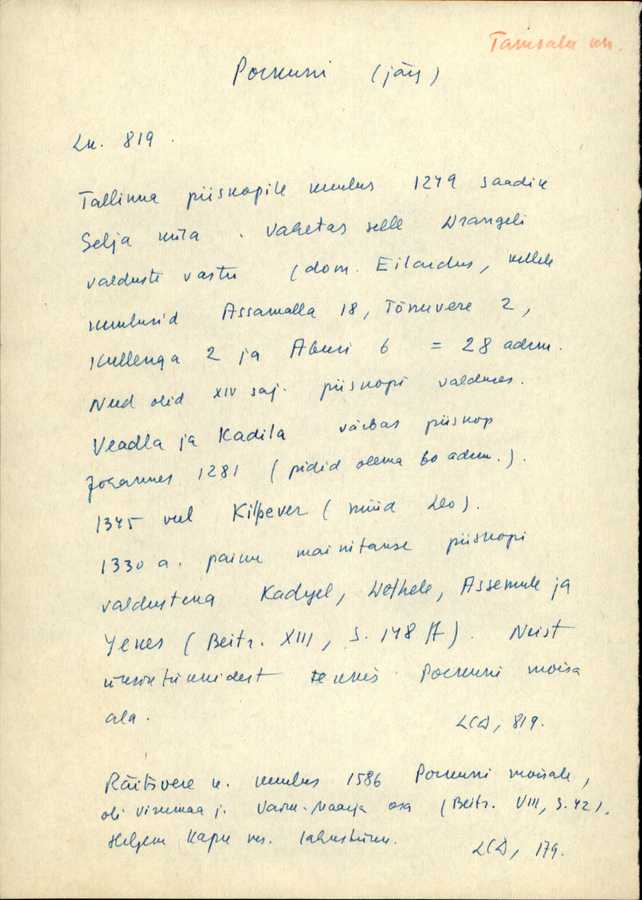 Tamsalu kn.
Porkuni (järg)
Lk. 819.
Tallinna piiskopile kuulus 1249 saadik
Selja küla. Vahetas selle Wrangeli
valduste vastu (dom. Eilardus, kellele
kuulusid Assamalla 18, Tõnuvere 2,
Kullenga 2 ja Aburi 6 = 28 adrm.
Need olid XIV saj. piiskopi valduses.
Veadla ja Kadila võttis piiskop
Johannes 1281 (pidid olema 60 adrm.).
1345 veel Kilpever (nüüd Leo).
1330 a. paiku mainitakse piiskopi
valdustena Kadyel, Wethele, Assemule ja
Yeues (Beitr. XIII, S. 148 ff). Neist
üksiktükkidest tekkis Porkuni mõisa
ala.
LCD, 819.
Räitsvere k. kuulus 1586 Porkuni mõisale,
oli Virumaa j. Väike-Maarja osa (Beitr. VIII, S. 42).
Hiljem Kapu ms. lahustükk.
LCD, 179.